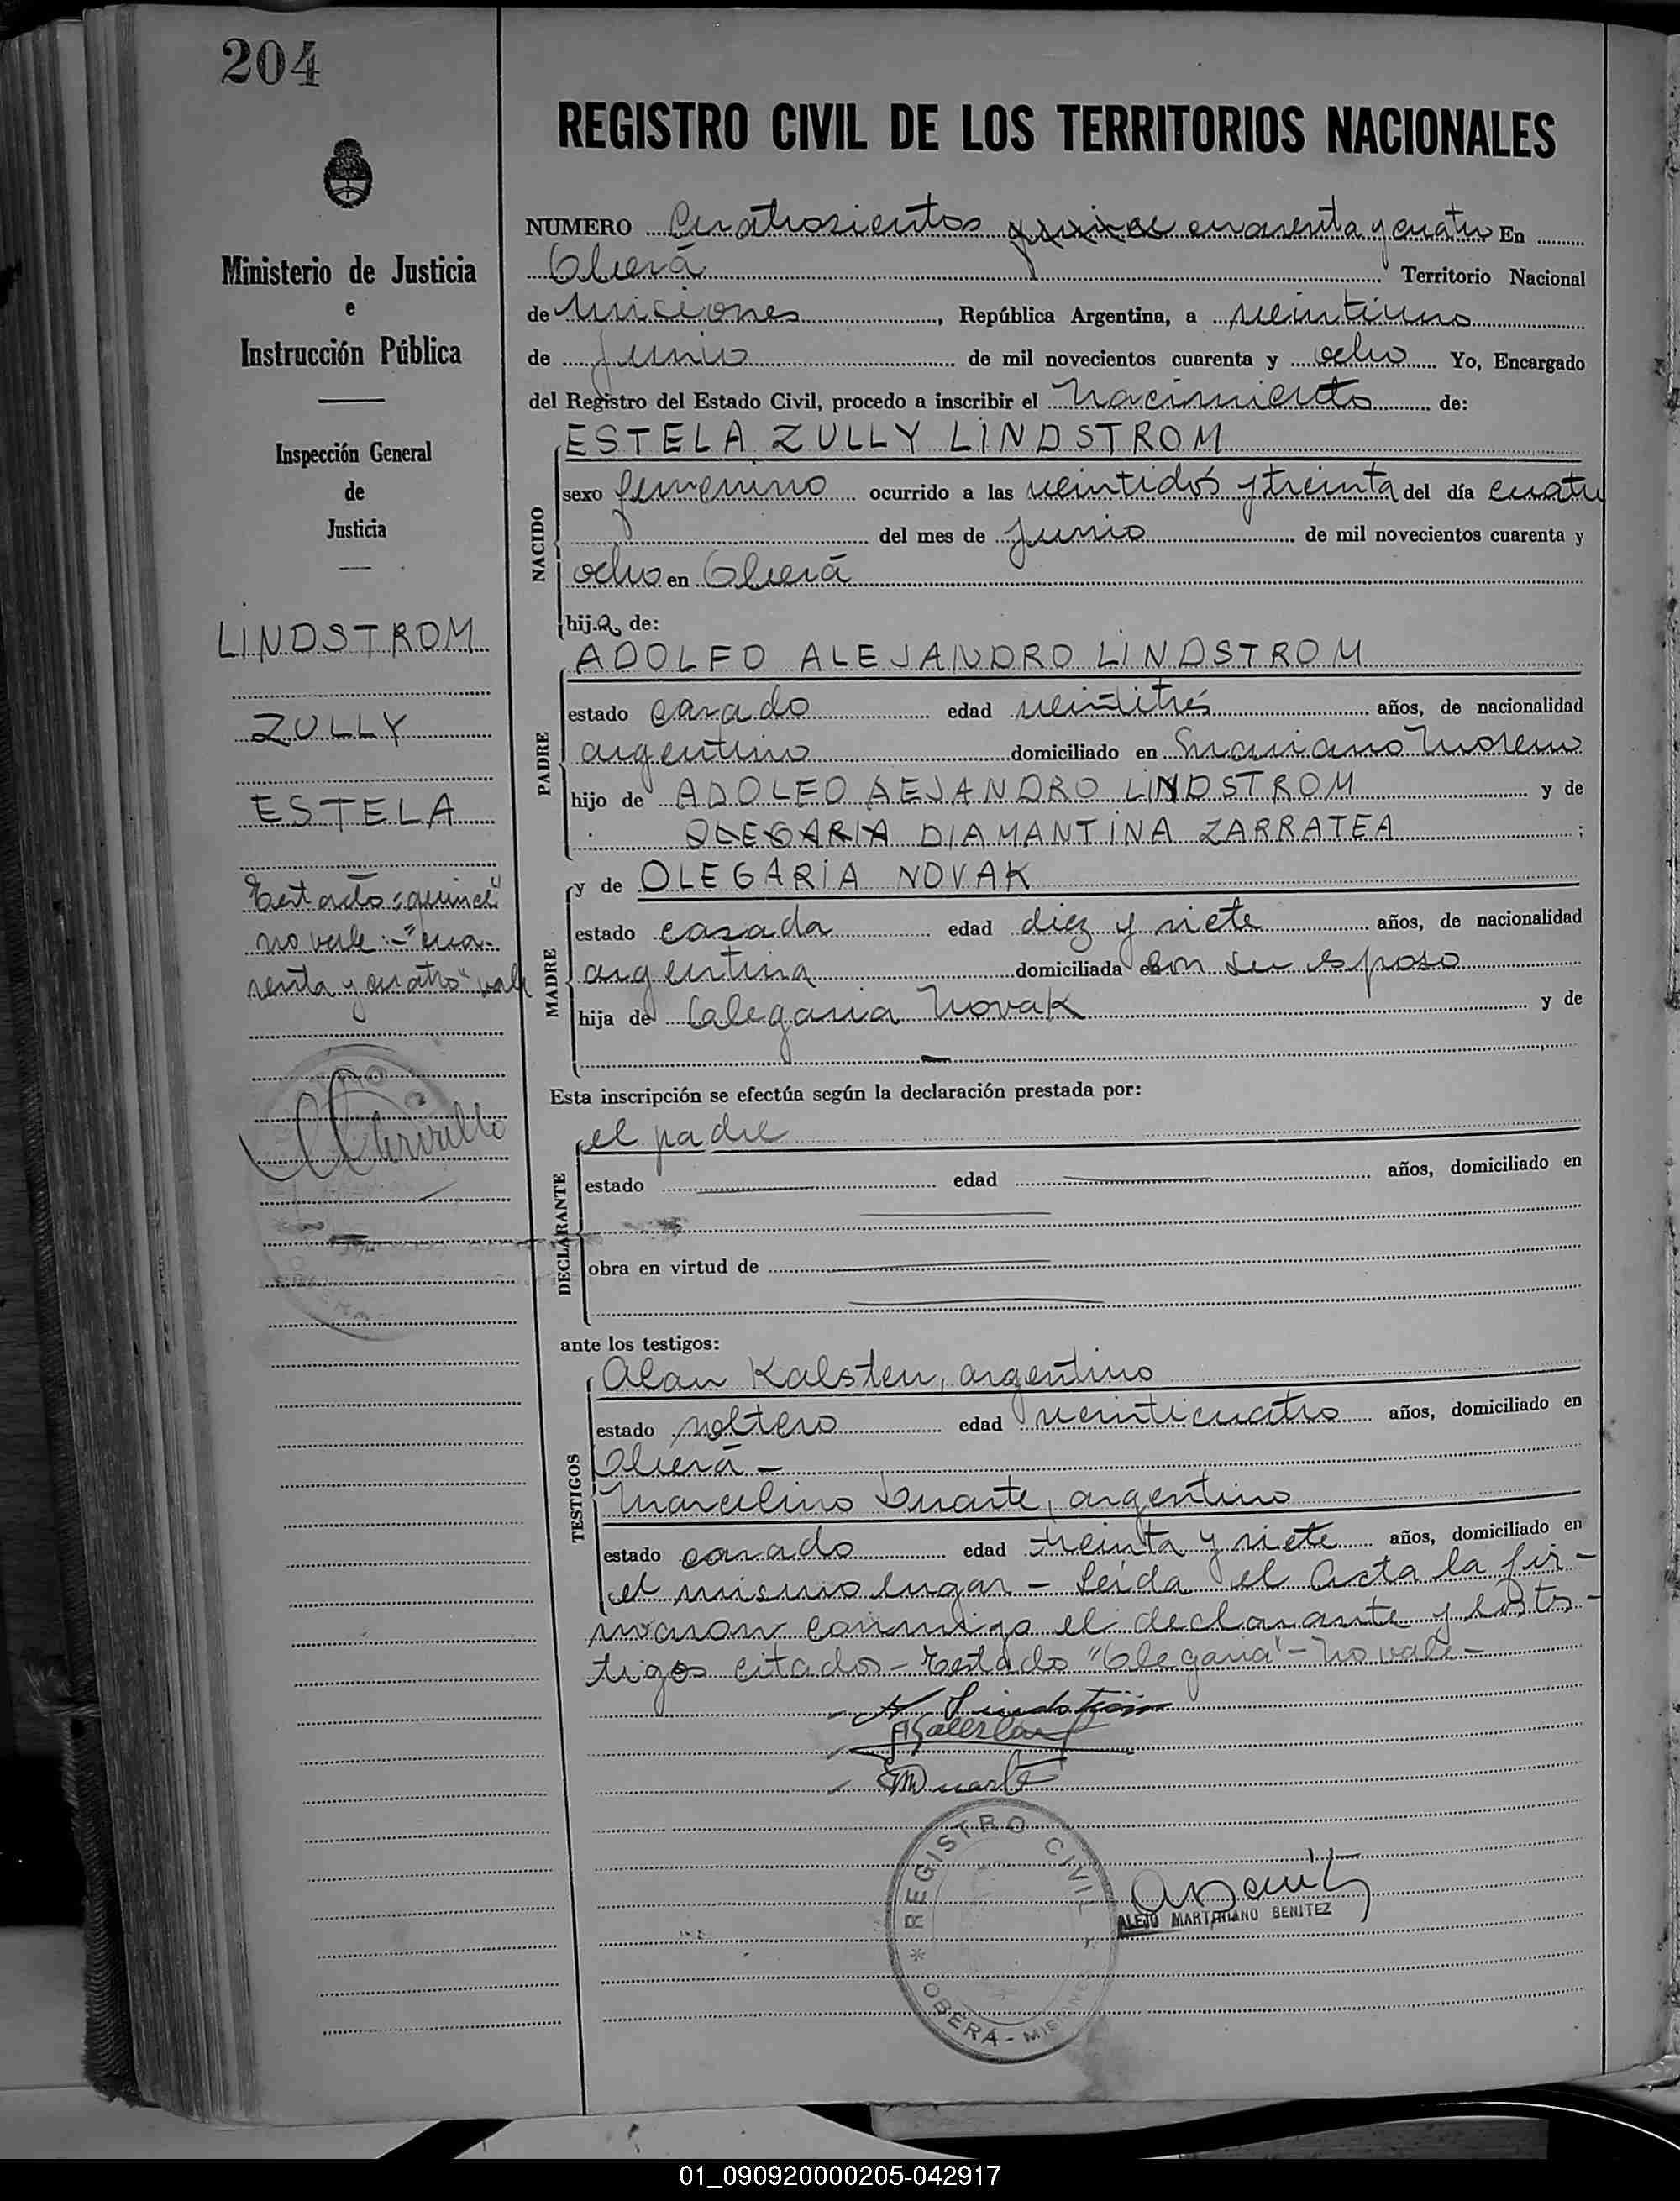 204
REGISTRO CIVIL DE LOS TERRITORIOS NACIONALES
Ministerio de Justicia
e
Instrucción Pública
Inspección General
de
Justicia
LINDSTROM
ZULLY
ESTELA
Testado: "quince"
no vale :- "cua-
renta y cuatro" vale
NUMERO Cuatrosientos quince cuarenta y cuatro En
Oberá Territorio Nacional
de Misiones, República Argentina, a veintiuno
de junio de mil novecientos cuarenta y ocho Yo, Encargado
del Registro del Estado Civil, procedo a inscribir el Nacimiento de:
NACIDO
ESTELA ZULLY LINDSTROM
sexo femenino ocurrido a las veintidós y treinta del día cuatro
del mes de Junio de mil novecientos cuarenta y
ocho en Oberá
hija de:
PADRE
ADOLFO ALEJANDRO LINDSTROM
estado casado edad veintitrés años, de nacionalidad
argentino domiciliado en Mariano Moreno
hijo de ADOLFO AEJANDRO LINDSTROM y de
OLEGARIA DIAMANTINA ZARRATEA ;
MADRE
y de OLEGARIA NOVAK
estado casada edad diez y siete años, de nacionalidad
argentina domiciliada con su esposo
hija de Olegaria Novak y de
Esta inscripción se efectúa según la declaración prestada por:
DECLARANTE
el padre
estado edad años, domiciliado en
obra en virtud de
ante los testigos:
TESTIGOS
Alan Kalsten, argentino
estado soltero edad veinticuatro años, domiciliado en
Oberá -
Marcelino Duarte, argentino
estado casado edad treinta y siete años, domiciliado en
el mismo lugar - Leída el Acta la fir-
maron conmigo el declarante y los ts-
tigos citados - Testado "Olegaria" - No vale -
A Lindstrom
MDuarte
REGISTRO CIVIL
OBERÁ - MISIONES
ALEJO MARTINIANO BENITEZ
01_090920000205-042917